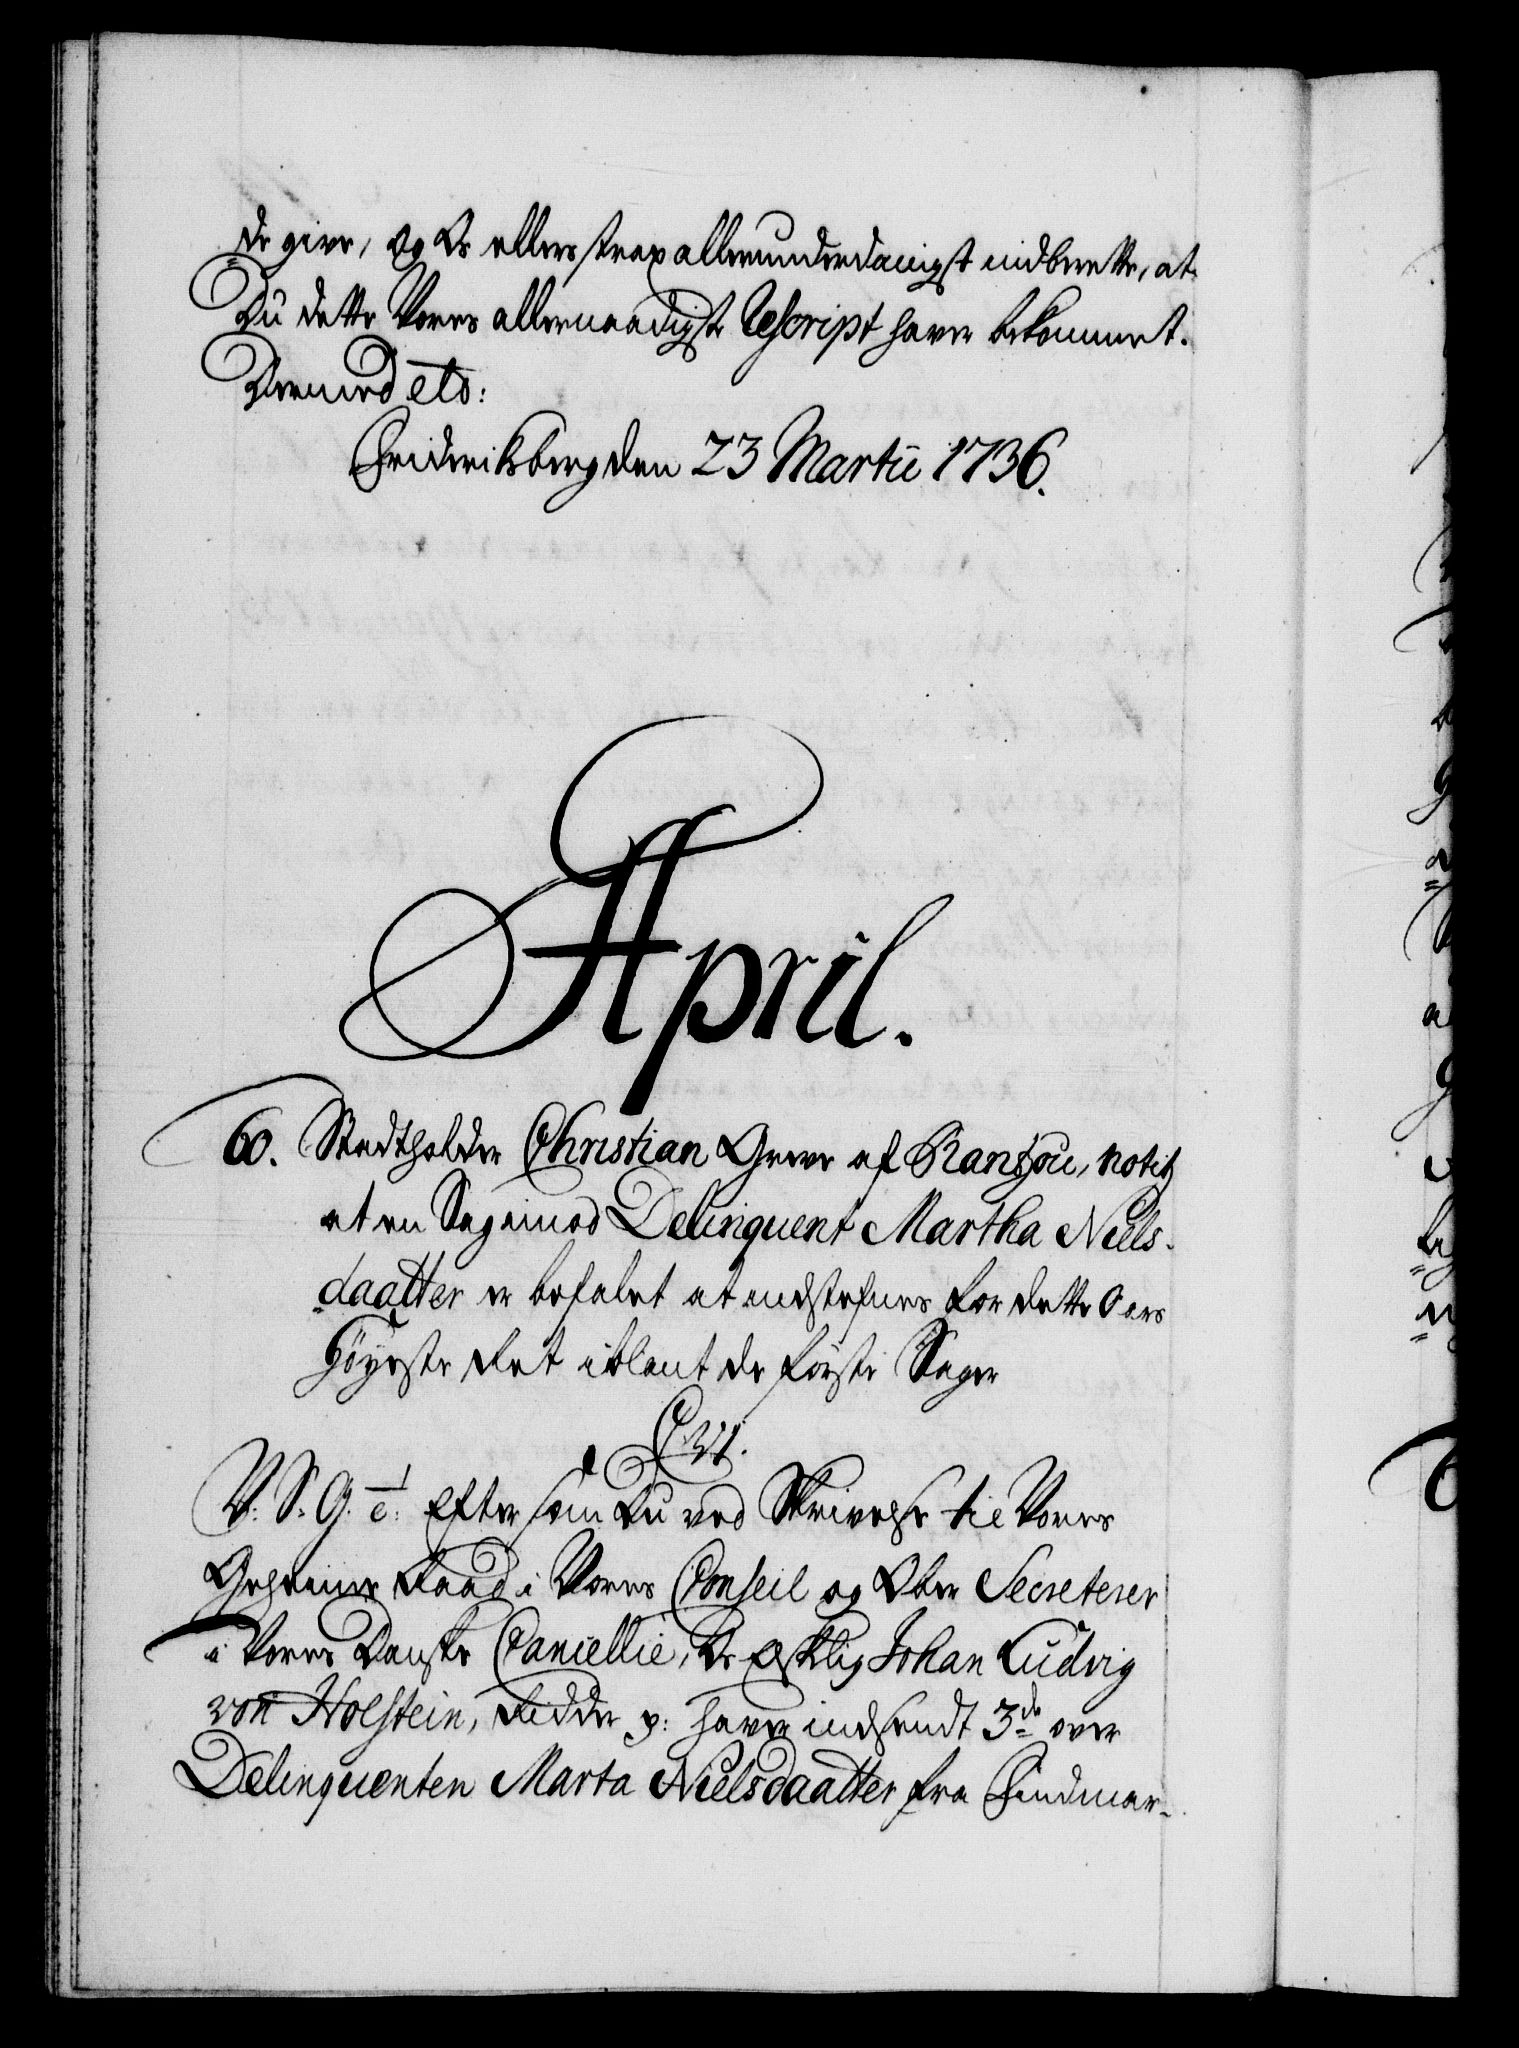 de give, og Os ellers strax allerunderdanigst indberette, at
Du dette Vores allernaadigste Rescript haver bekommet.
Dermed etc:
Friderichsberg den 23 Martii 1736.
April.
60. Stadtholder Christian Greve af Rantzou, notitz
at en Sag imod Delinquent Martha Niels-
daatter er befalet at indstefnes for dette Aars
Høyeste Ret iblant de første Sager
C. VI.
V: S. G. e: Efter som Du ved Skrivelse til Vores
Geheime Raad i Vores Conseil og Ober Secreterer
i Vores Danske Cancellie, Os Elskelig Johan Ludvig
von Holstein, Ridder p: haver indsendt 3de over
Delinquenten Marta Nielsdaatter fra Findmar-